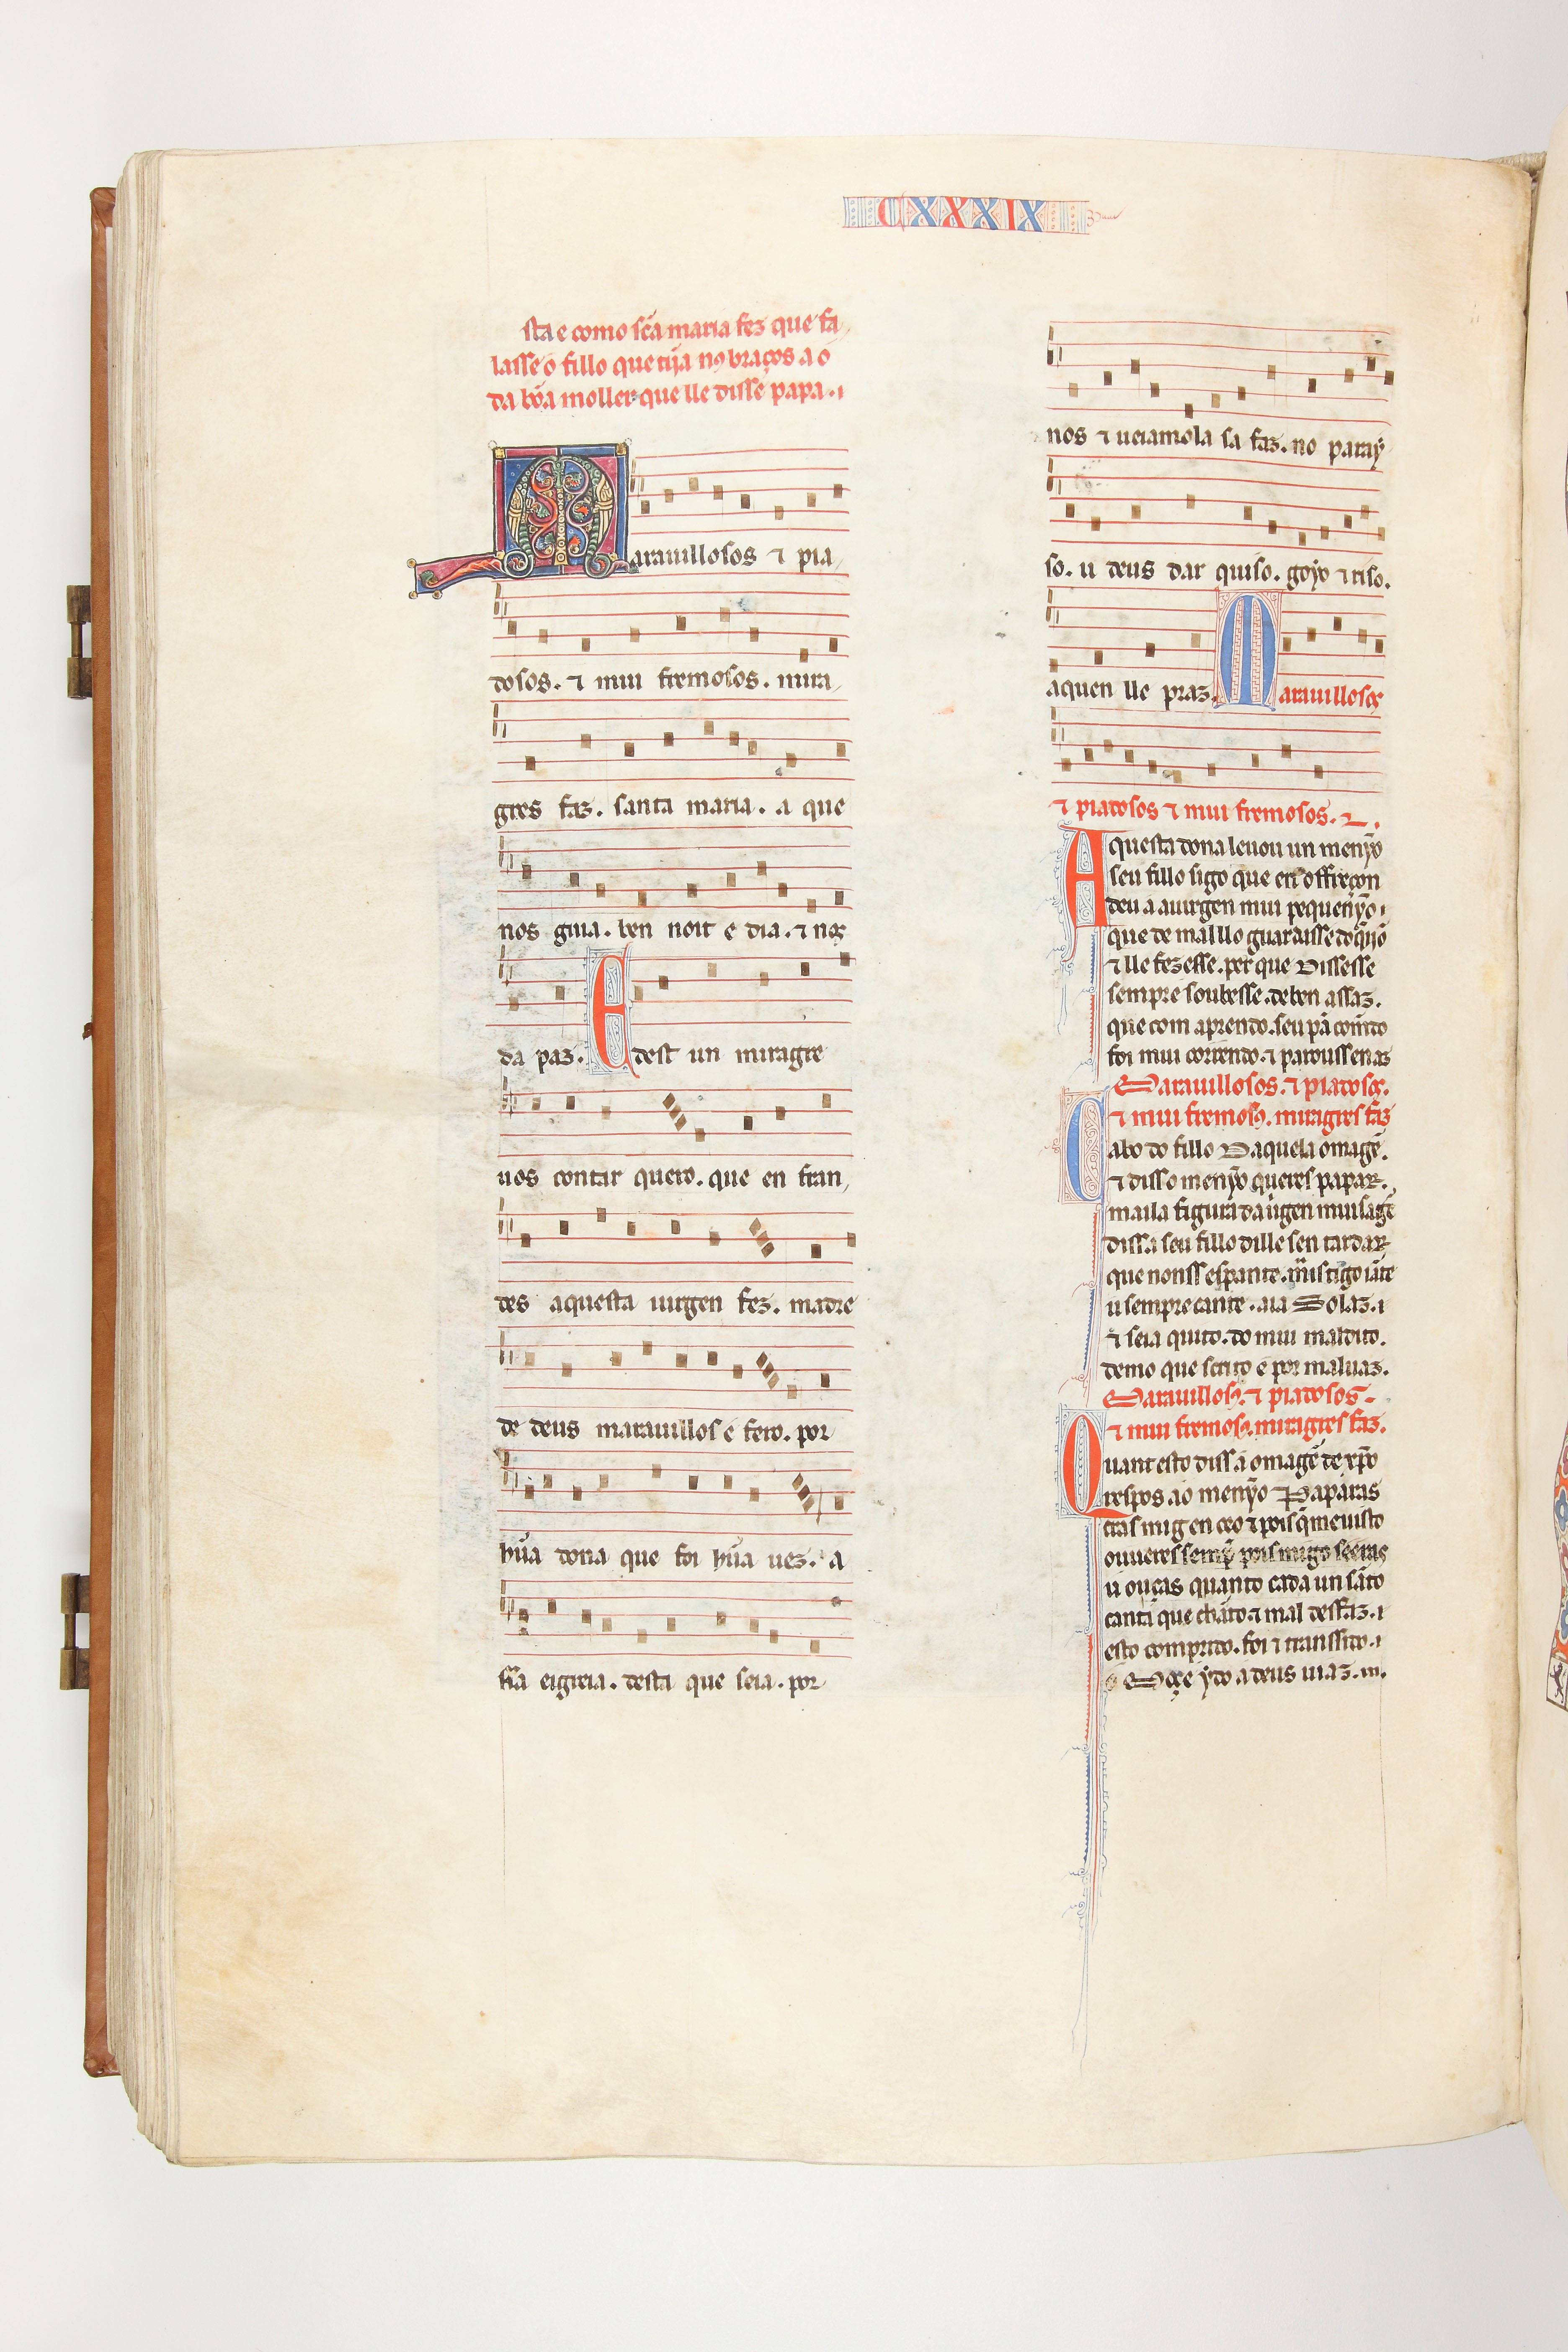 CXXXIX
sta e como sc̃a maria fez que fa
lasse o fillo que tiỹa nos braços a o
da bõa moller que lle disse papa.
Marauillosos ⁊ pia
dosos. ⁊ mui fremosos. mira
gres faz. santa maria. a que
nos guia. ben noit e dia. ⁊ nos
da paz. E dest un miragre
uos contar quero. que en fran
des aquesta uirgen fez. madre
de deus marauillos e fero. por
hũa dona que foi hũa uez. a
ssa eigreia. desta que seia. por
nos ⁊ ueiamola sa faz. no paray
so. u deus dar quiso. goyo ⁊ riso.
a quen lle praz. Marauillosos
⁊ piadosos ⁊ mui fremosos. ⁊.
Aquesta dona leuou un menỹo
seu fillo sigo que en offreçon
deu a auirgen mui pequenỹo
que de mal llo guardasse do q̃ỹo
⁊ lle fezesse. per que dissesse
sempre soubesse. de ben assaz.
que com aprendo. seu pã comẽdo
foi mui correndo. ⁊ parouss en az
Marauillosos. ⁊ piadosos.
⁊ mui fremosos. miragres faz
Cabo do fillo daquela omagẽ.
⁊ diss o menỹo queres papar.
mai la figura da uirgen mui sagẽ
diss a seu fillo dille sen tardar
que nonss espante. mais tigo iãte
u sempre cante. aia solaz.
⁊ seia quito. do mui maldito.
demo que scrito e por maluaz.
Marauillosos. ⁊ piadosos.
⁊ mui fremosos. miragres faz.
Quant esto diss a omagẽ de xp̃o
respos ao menỹo Paparas
cras mig en ceo ⁊ pois q̃ me uisto
ouueres semp̃ pois migo seeras
u ouças quanto cada un sãto
canta que chãto ⁊ mal desfaz.
esto comprido. foi ⁊ transsido.